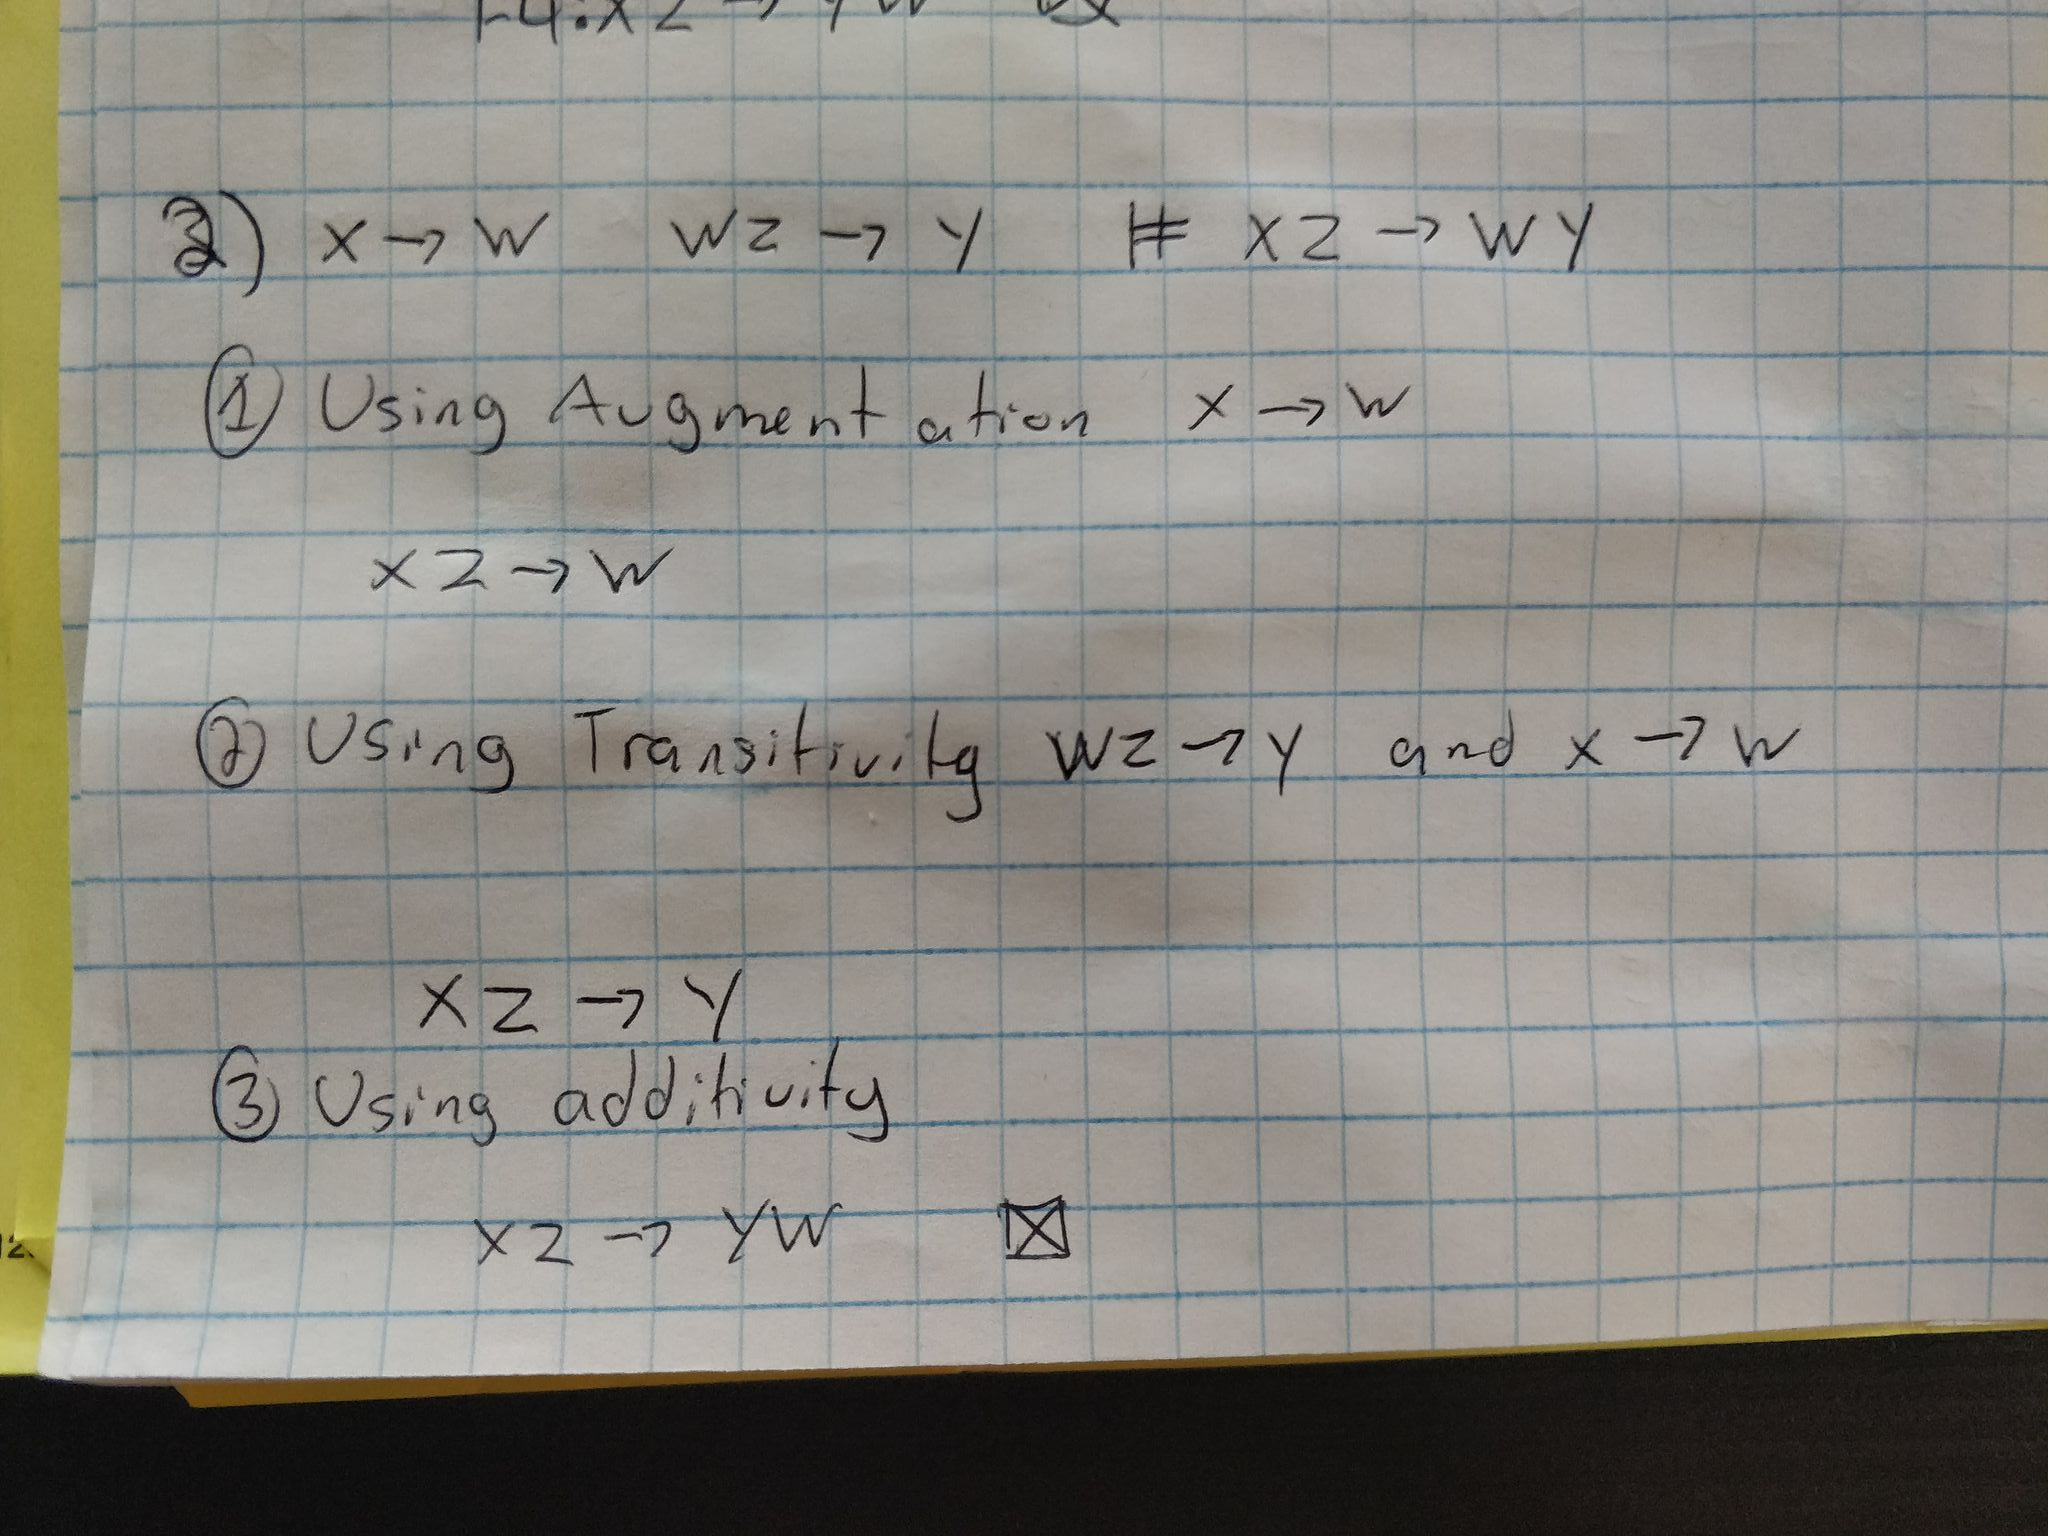 F4: XZ → YW
2) X → W WZ → Y ⊭ XZ → WY
① Using Augmentation X → W
XZ → W
② Using Transitivity WZ → Y and X → W
XZ → Y
③ Using additivity
XZ → YW ⊠
12.